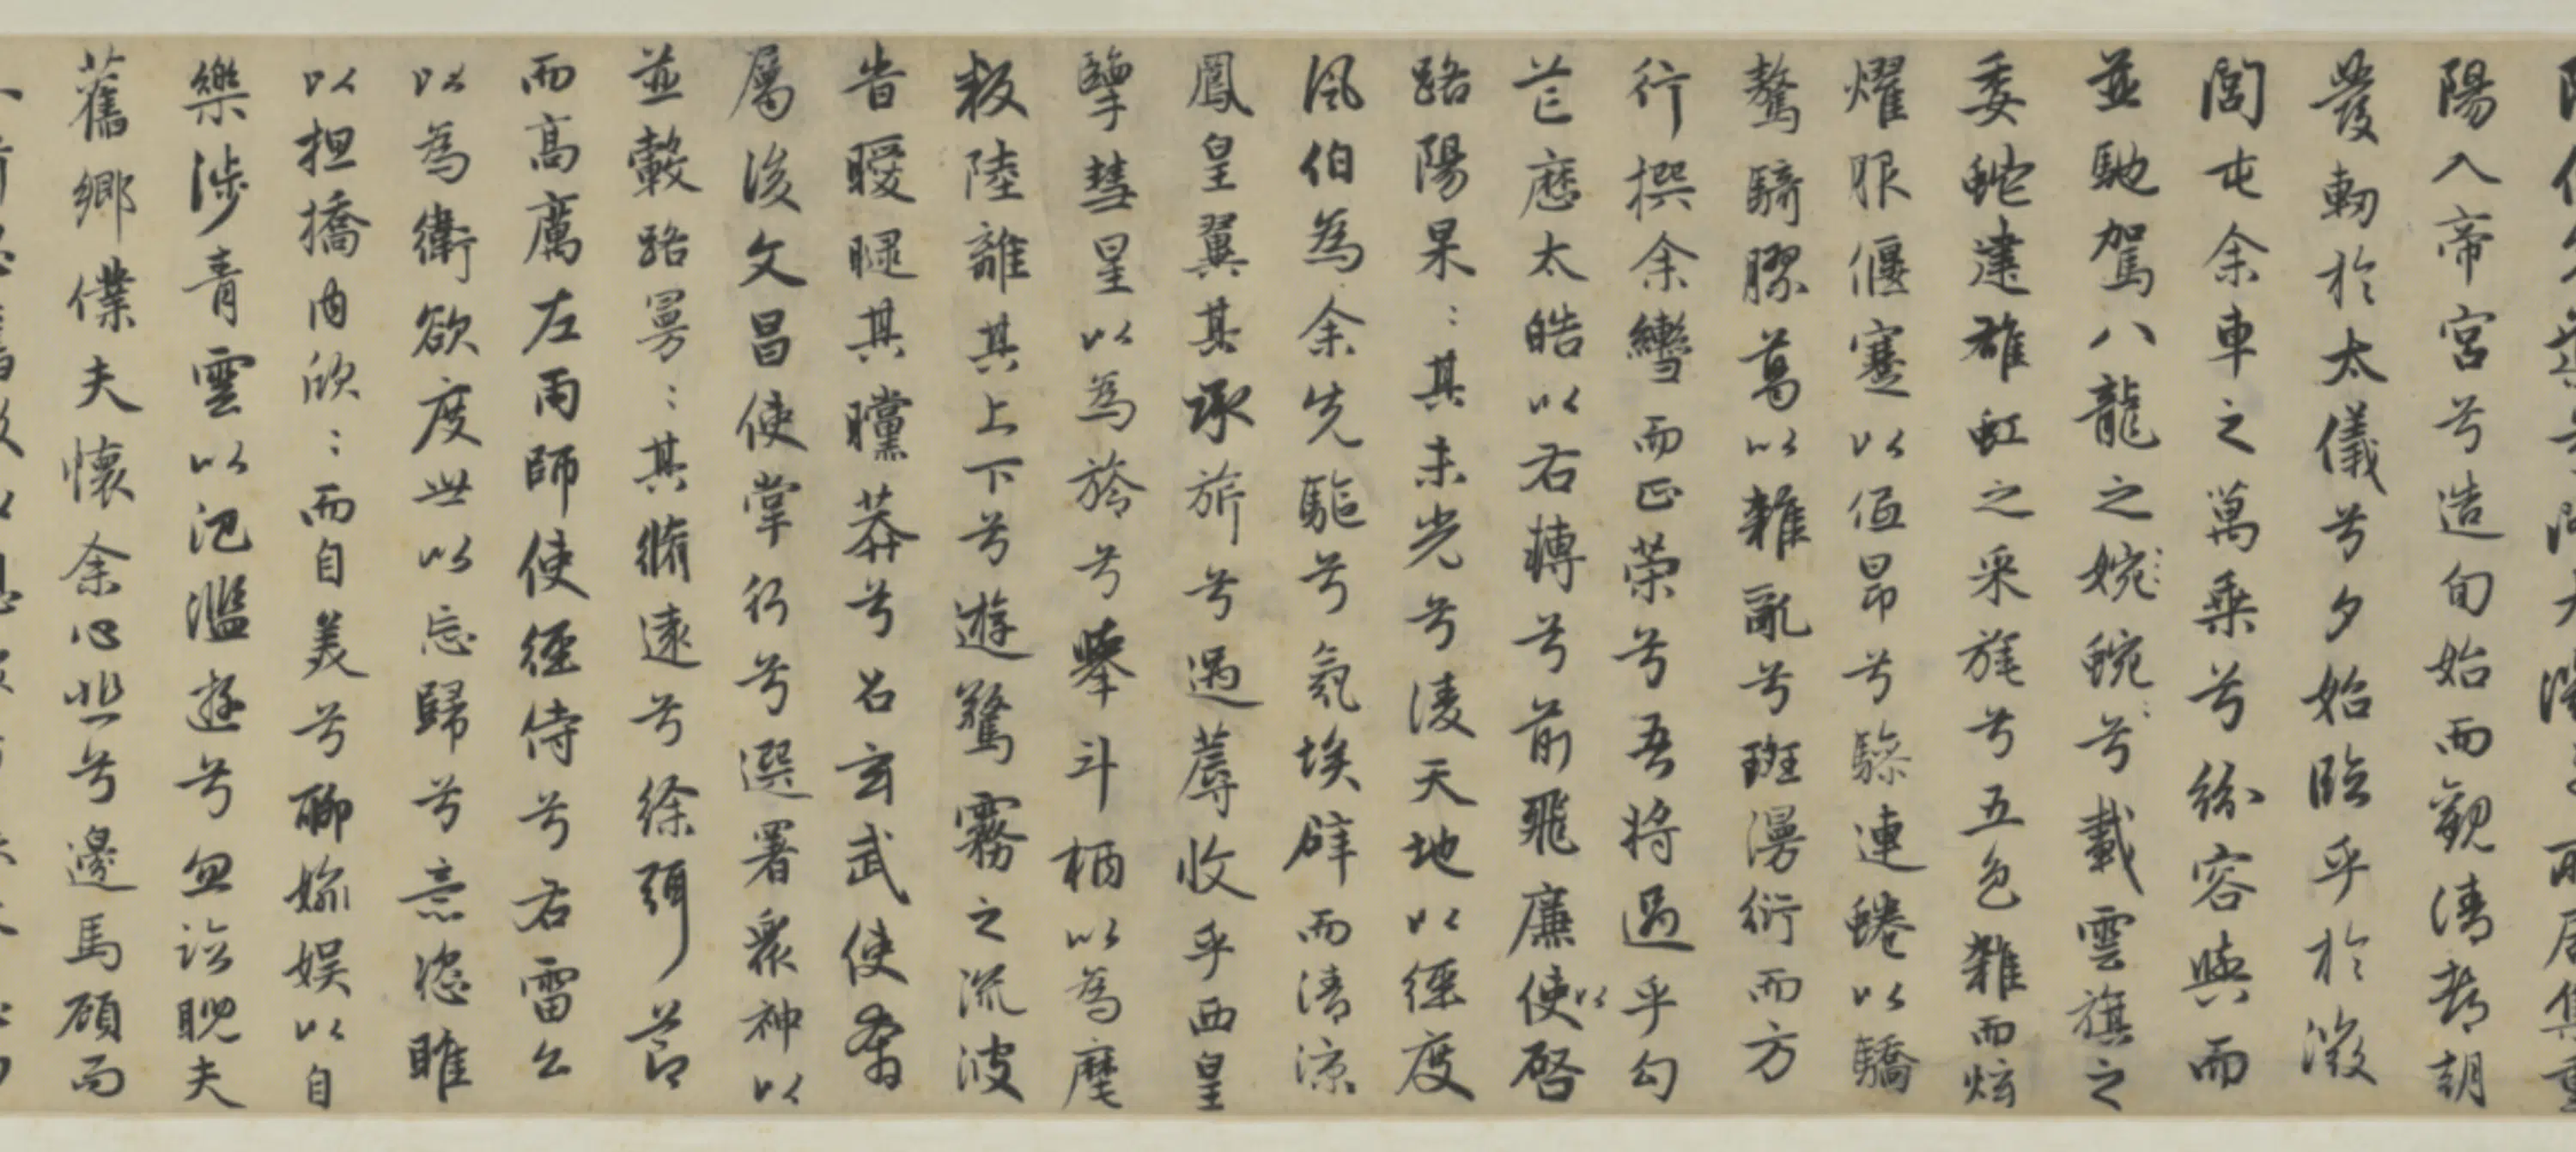 陽入帝宮兮造旬始而觀清都朝
發軔於太儀兮夕始臨乎於微
閭屯余車之萬乘兮紛容與而
並馳駕八龍之婉蜿兮載雲旗之
委蛇建雄虹之采旄兮五色雜而炫
燿服偃蹇以低昂兮驂連蜷以驕
驁騎膠葛以雜亂兮斑漫衍而方
行撰余轡而正策兮吾將過乎勾
芒歷太皓以右轉兮前飛廉使以啓
路陽杲:其未光兮淩天地以徑度
風伯為余先驅兮氛埃辟而清涼
鳳皇翼其承旂兮遇蓐收乎西皇
擥彗星以為旍兮舉斗柄以為麾
叛陸離其上下兮遊驚霧之流波
旹曖曃其曭莽兮召玄武使奔
屬後文昌使掌行兮選署衆神以
並轂路曼:其脩遠兮徐弭節
而高厲左雨師使徑侍兮右雷公
以為衛欲度世以忘歸兮意恣睢
以担撟內欣:而自美兮聊媮娛以自
樂涉青雲以汜濫遊兮忽臨睨夫
舊鄉僕夫懷余心悲兮邊馬顧而